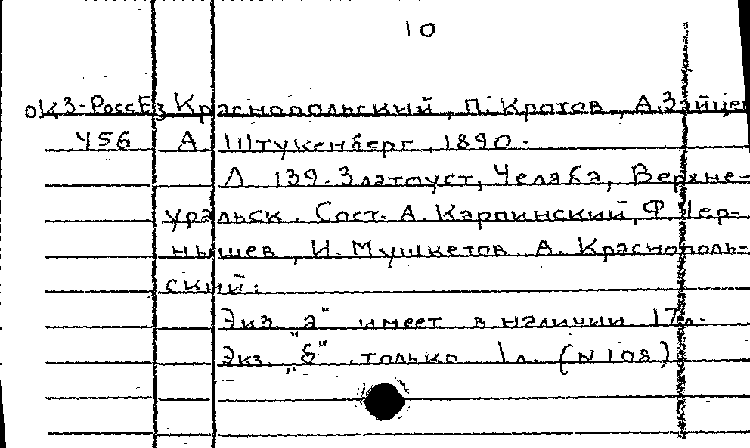 10
ок3-РоссЕз Краснопольский, П. Кротов, А.Зайцев
456 А Штукенберг, 1890.
Л 139. Златоуст, Челяба, Верхне-
уральск. Сост. А. Карпинский, Ф. Чер-
нышев, И. Мушкетов А. Краснополь-
ский.
Экз "а" имеет в наличии 17л.
Экз. "б" только 1л. (N 108)